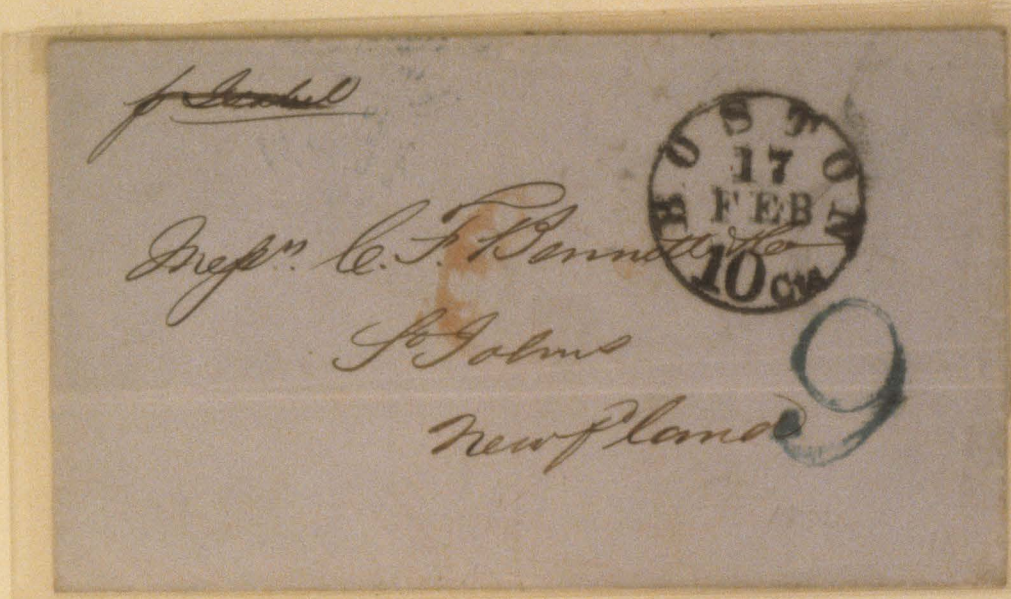 p Isabel
BOSTON
17
FEB
10 Cts
Messrs. C. F. Bennett & Co
St Johns
Newfland
9